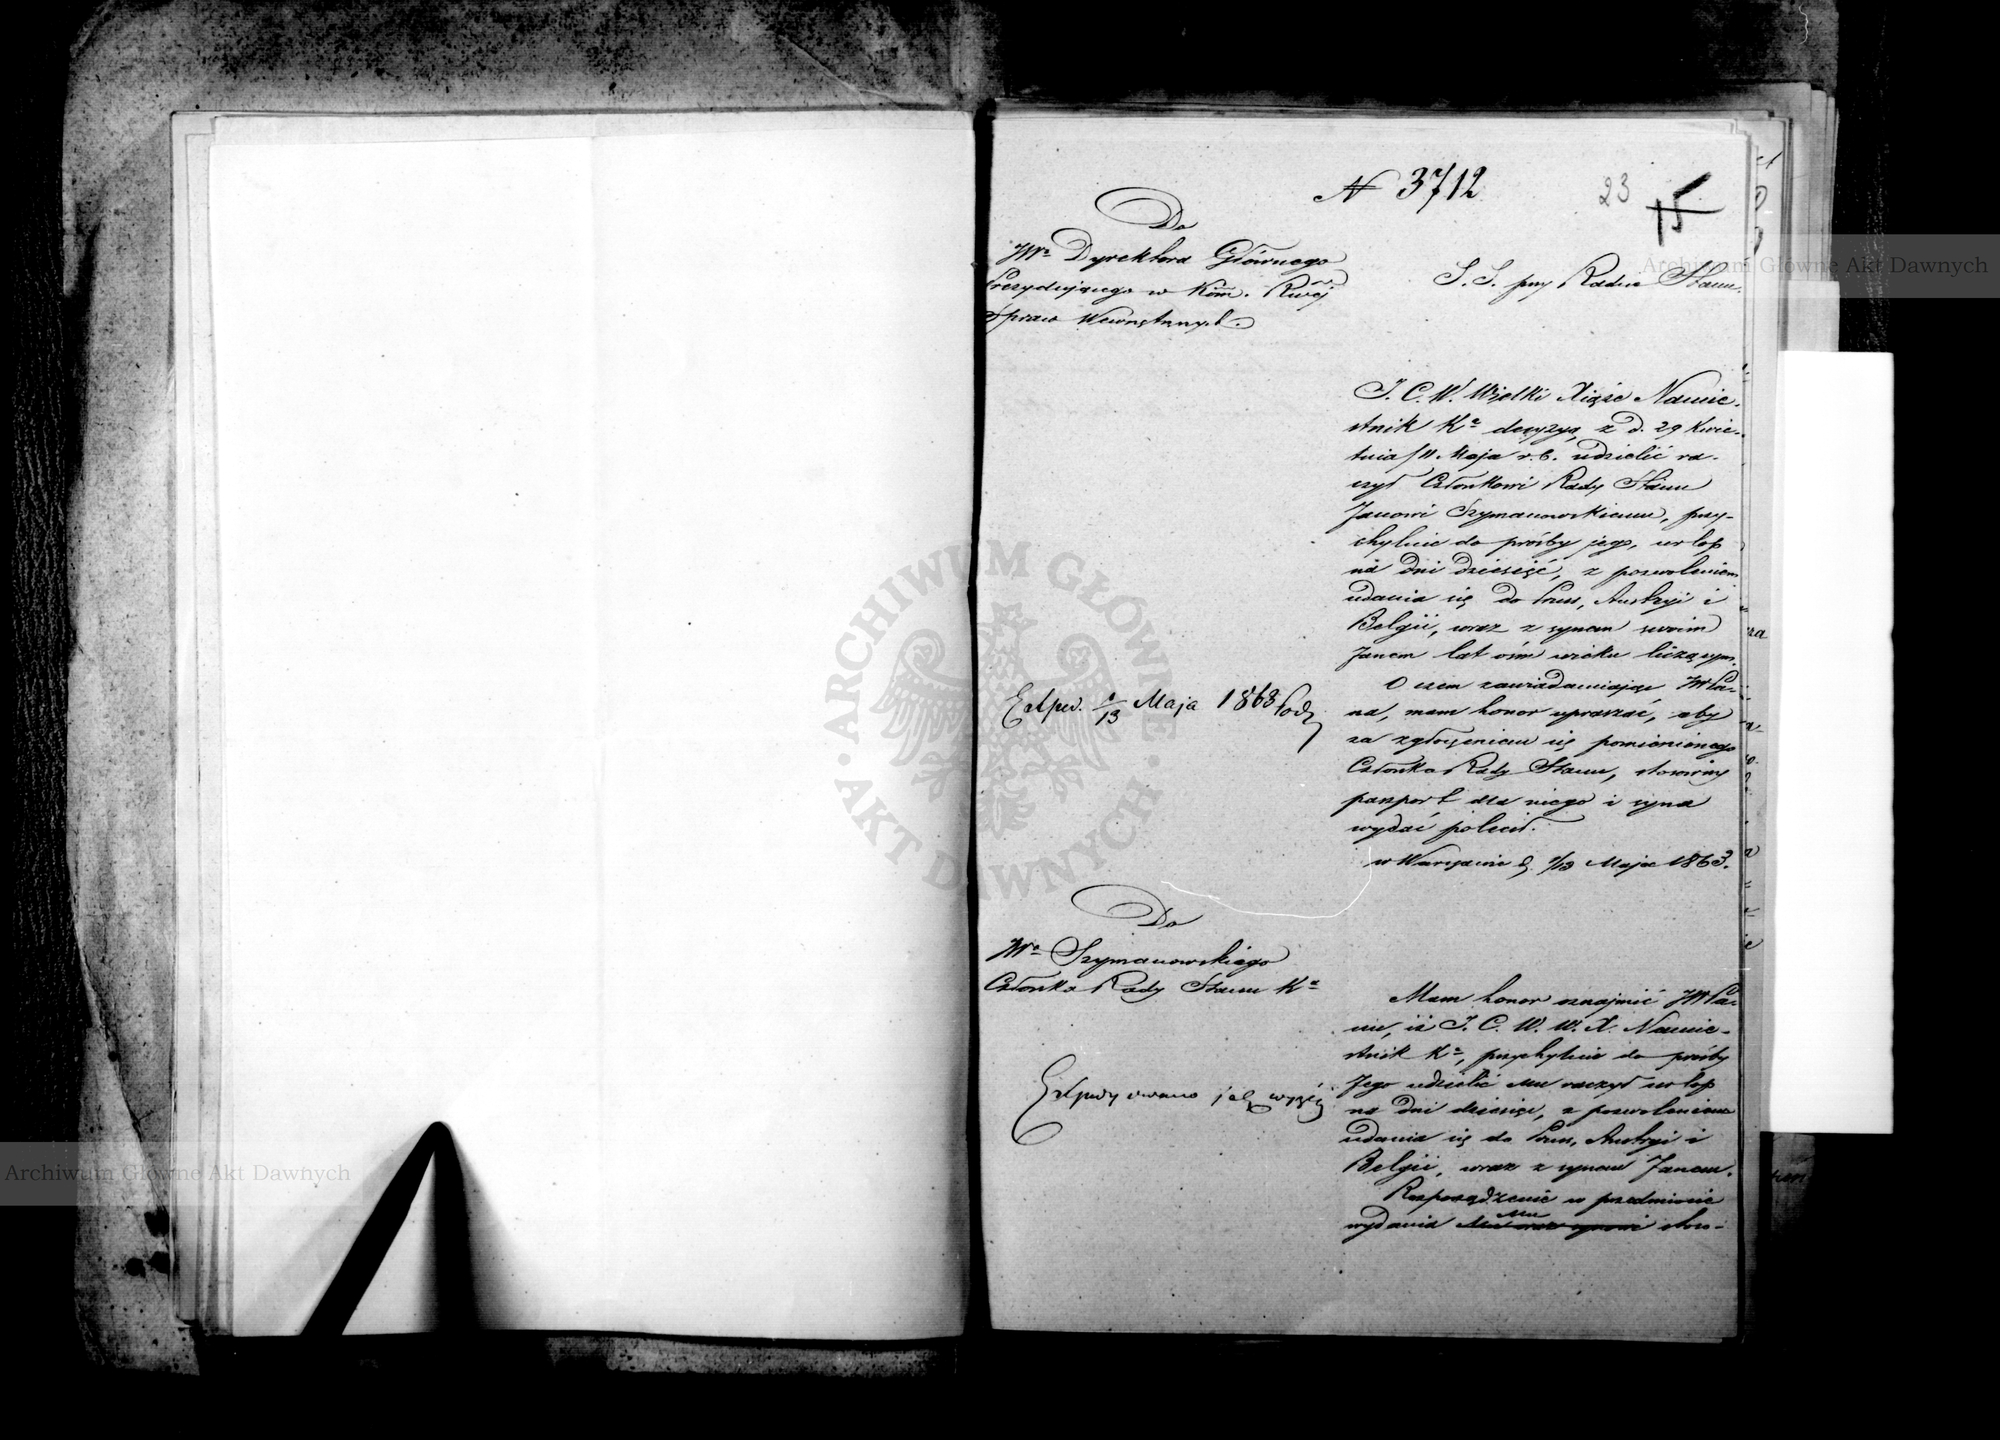 N 3712
23
15
Do
JWo Dyrektora Głównego
Prezydującego w Kom. Rwéj
Spraw Wewnętrznych.
S. S. przy Radzie Stanu.
J. C. W. Wielki Xiąże Namie-
stnik Ka decyzyą z d. 29 Kwie-
tnia/11 Maja r. b. udzielić ra-
czył Członkowi Rady Stanu
Janowi Szymanowskiemu, przy-
chylnie do prośby jego, urlop
na dni dziesięć, z pozwoleniem
udania się do Pruss, Austryi i
Belgii, wraz z synem swoim
Janem lat ośm wieku liczącym.
O czem zawiadamiając JWPa-
na, mam honor upraszać, aby
za zgłoszeniem się pomienionego
Członka Rady Stanu, stosowny
paszport dla niego i syna
wydać polecił.
w Warszawie d. 1/13 Maja 1863.
Exped. 1/13 Maja 1863
Do
JWo Szymanowskiego
Członka Rady Stanu Ka
Mam honor oznajmić JWPa-
nu, iż J. C. W. W. X. Namie-
stnik Ka, przychylnie do prośby
Jego udzielić Mu raczył urlop
na dni dziesięć, z pozwoleniem
udania się do Pruss, Austryi i
Belgii, wraz z synem Janem.
Rozporządzenie w przedmiocie
Mu
wydania synowi stoso-
Expedyowano jak wyżej
ARCHIWUM GŁÓWNE AKT DAWNYCH
Archiwum Główne Akt Dawnych
Archiwum Główne Akt Dawnych